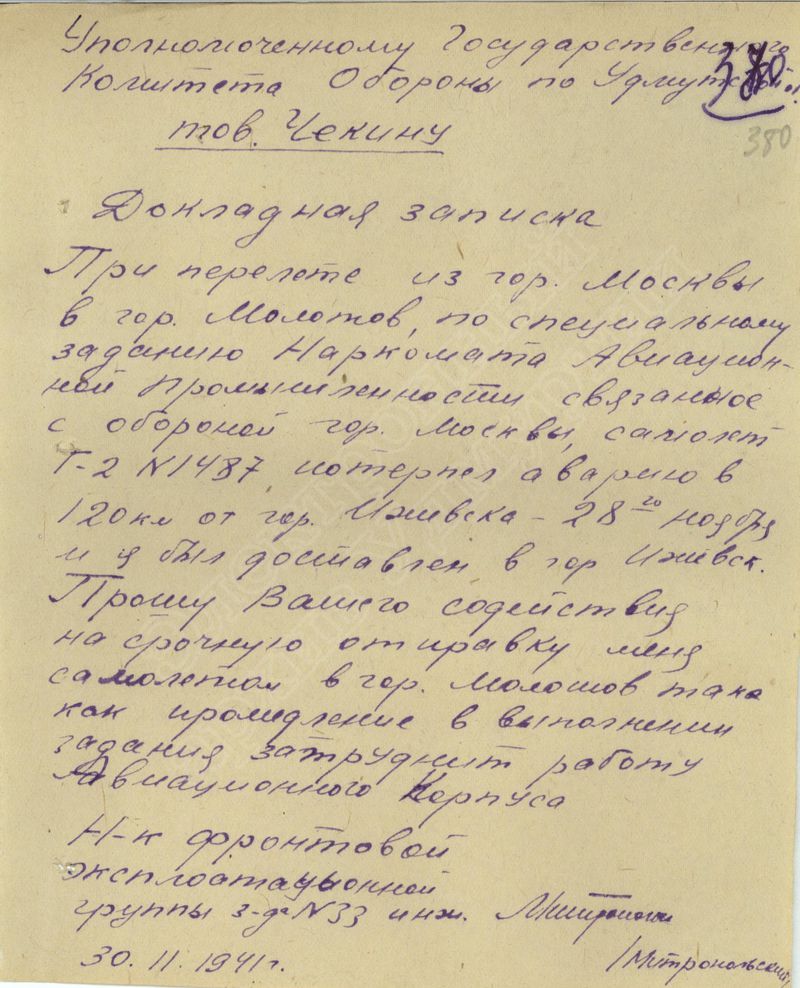 Уполномоченному Государственного
Комитета Обороны по Удмуртской
380
тов. Чекину
380
Докладная записка
При перелете из гор. Москвы
в гор. Молотов, по специальному
заданию Наркомата Авиацион-
ной промышленности связанное
с обороной гор. Москвы, самолет
Г-2 N1487 потерпел аварию в
120 км от гор. Ижевска - 28го ноября
и я был доставлен в гор Ижевск.
Прошу Вашего содействия
на срочную отправку меня
самолетом в гор. Молотов так
как промедление в выполнении
задания затруднит работу
Авиационного Корпуса
Н-к фронтовой
эксплоатационной
группы з-да N33 инж.
30.11.1941г.
/Митропольский/